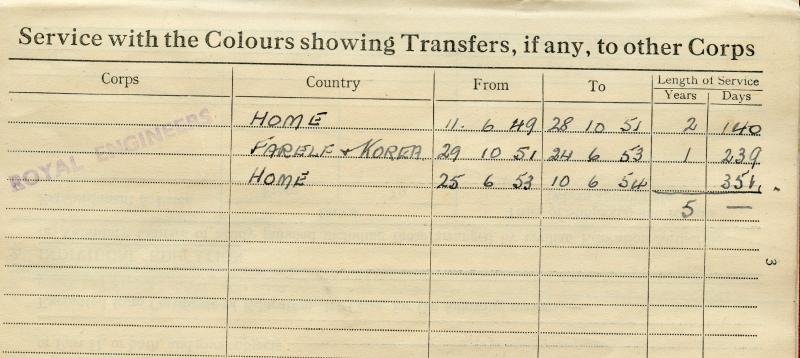 Service with the Colours showing Transfers, if any, to other Corps
Corps Country From To Length of Service
Years Days
ROYAL ENGINEERS
HOME 11 6 49 28 10 51 2 140
FARELF & KOREA 29 10 51 24 6 53 1 239
HOME 25 6 53 10 6 54 351
5 —
3